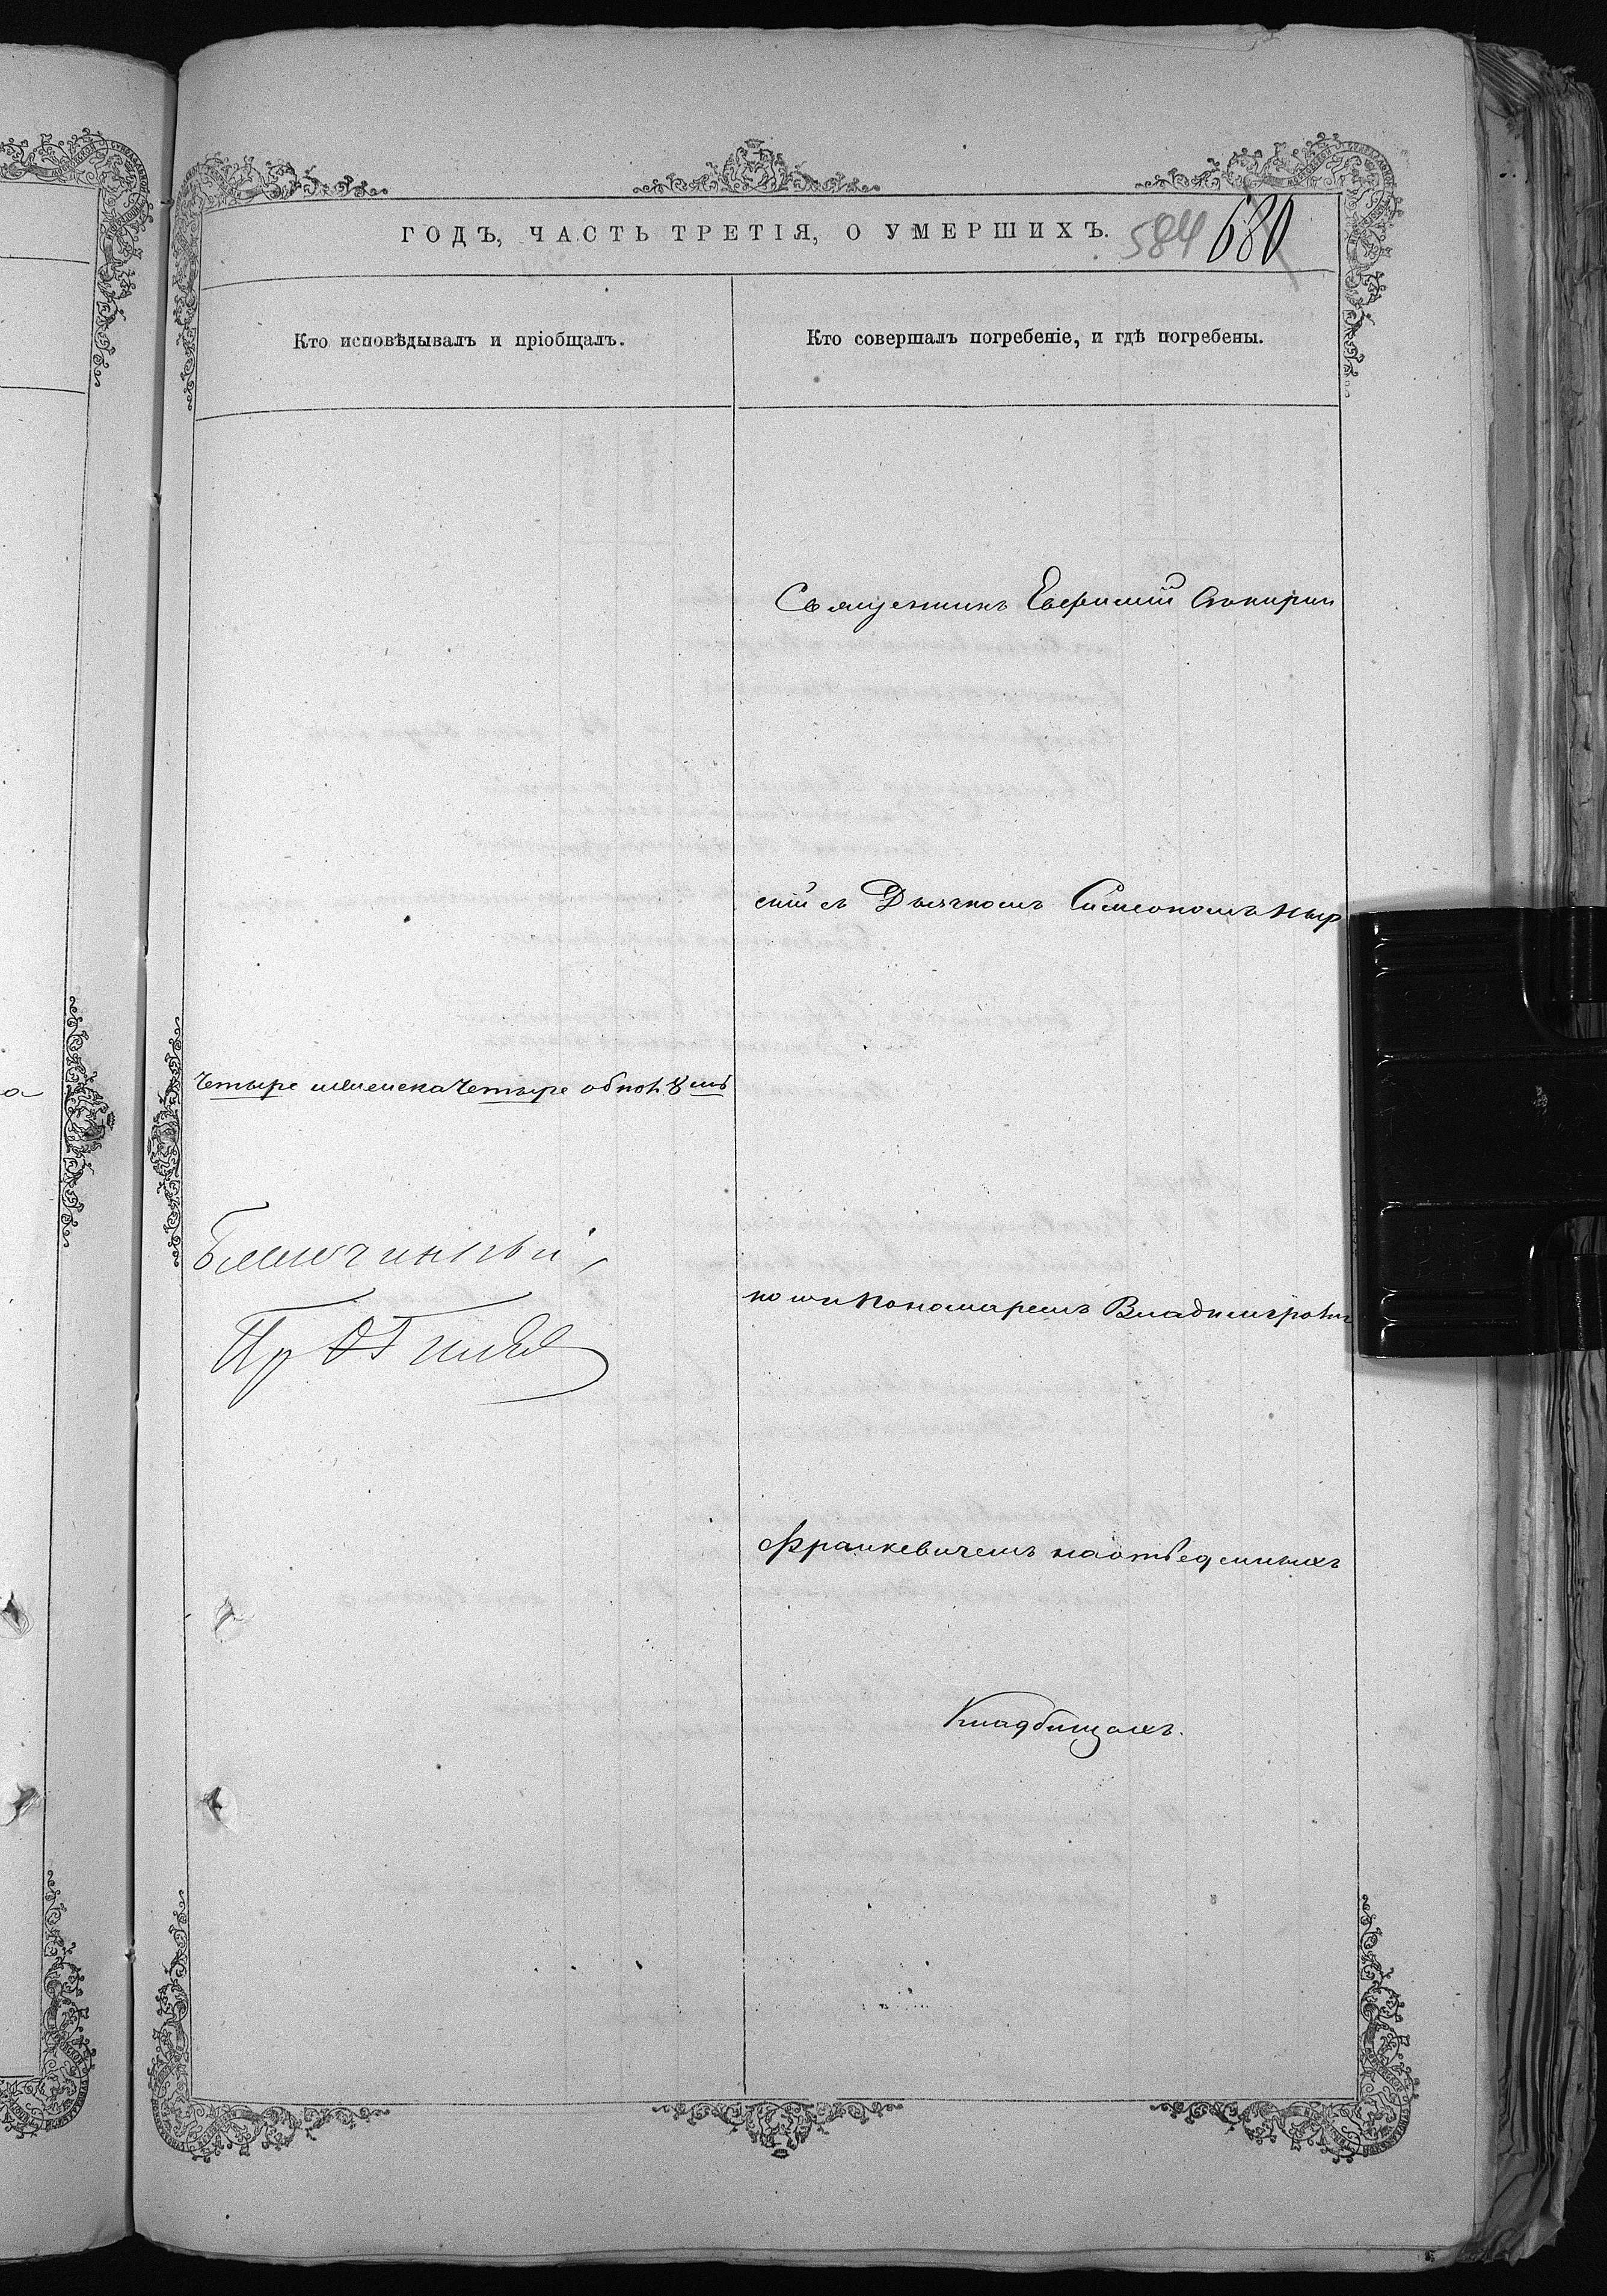 ГОДЪ, ЧАСТЬ ТРЕТІЯ, О УМЕРШИХЪ.
584 680
Кто исповѣдывалъ и пріобщалъ.
Кто совершалъ погребеніе, и гдѣ погребены.
Священникъ Евфимій
скій съ Дьячкомъ Симеономъ
Четыре человека Четыре обоихъ 8мь
Благочинный
Пр
пономаремъ Владиміромъ
Франкевичемъ на отведенныхъ
Кладбищахъ.
а